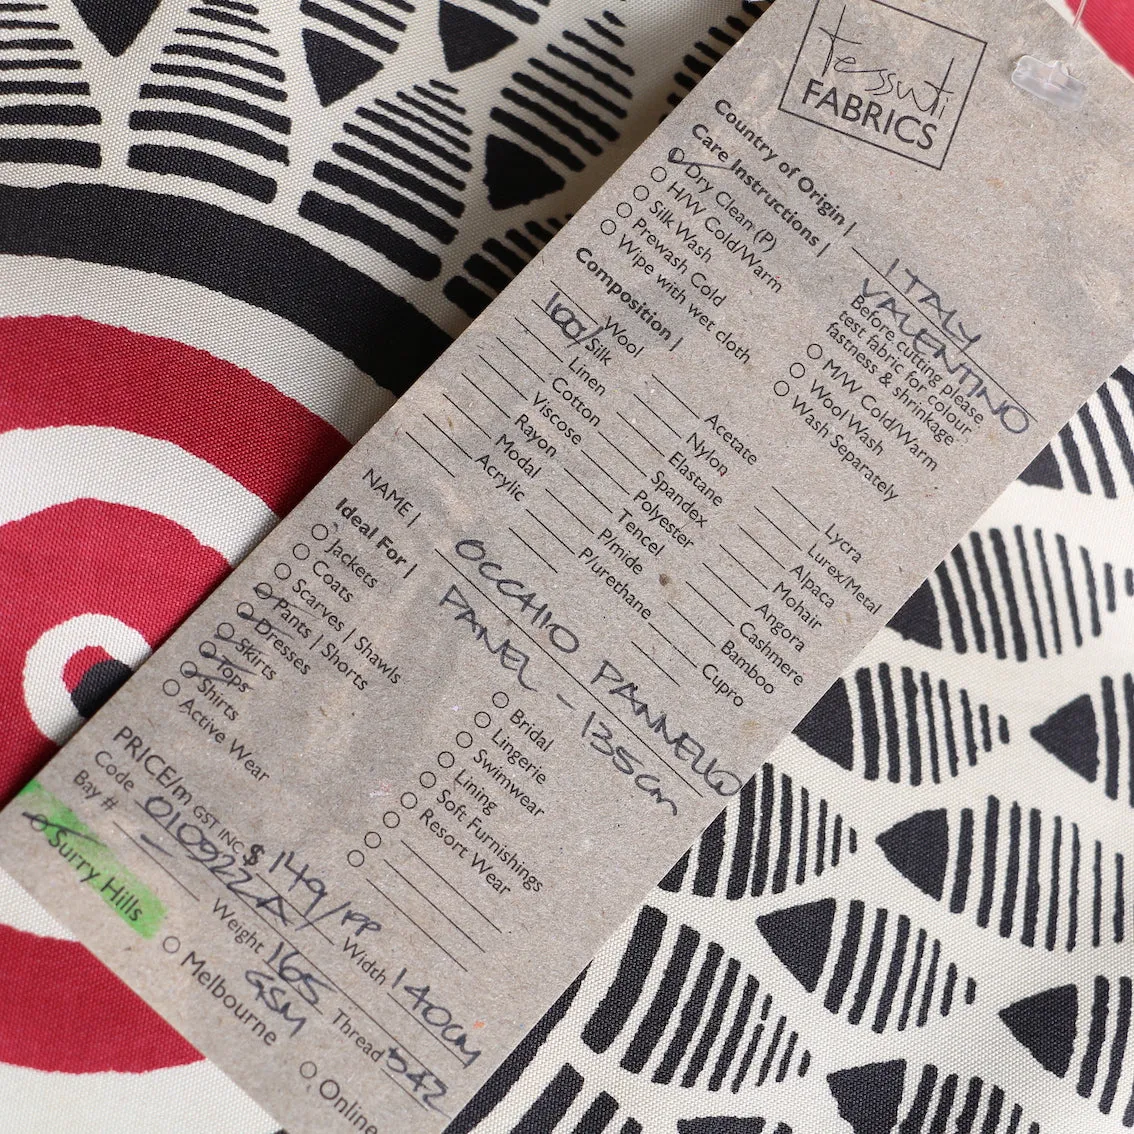 tessuti
FABRICS
Country of Origin | ITALY
VALENTINO
Care Instructions |
Dry Clean (P)
H/W Cold/Warm
Silk Wash
Prewash Cold
Wipe with wet cloth
Before cutting please
test fabric for colour
fastness & shrinkage
M/W Cold/Warm
Wool Wash
Wash Separately
Composition |
Wool
100/ Silk
Linen
Cotton
Viscose
Rayon
Modal
Acrylic
Acetate
Nylon
Elastane
Spandex
Polyester
Tencel
P/mide
P/urethane
Lycra
Lurex/Metal
Alpaca
Mohair
Angora
Cashmere
Bamboo
Cupro
NAME | OCCHIO PANNELLO
PANEL - 135cm
Ideal For |
Jackets
Coats
Scarves | Shawls
Pants | Shorts
Dresses
Skirts
Tops
Shirts
Active Wear
Bridal
Lingerie
Swimwear
Lining
Soft Furnishings
Resort Wear
PRICE/m GST INC $ 149/PP
Code 010922A Width 140cm
Bay # Weight 165 GSM Thread 542
Surry Hills
Melbourne
Online